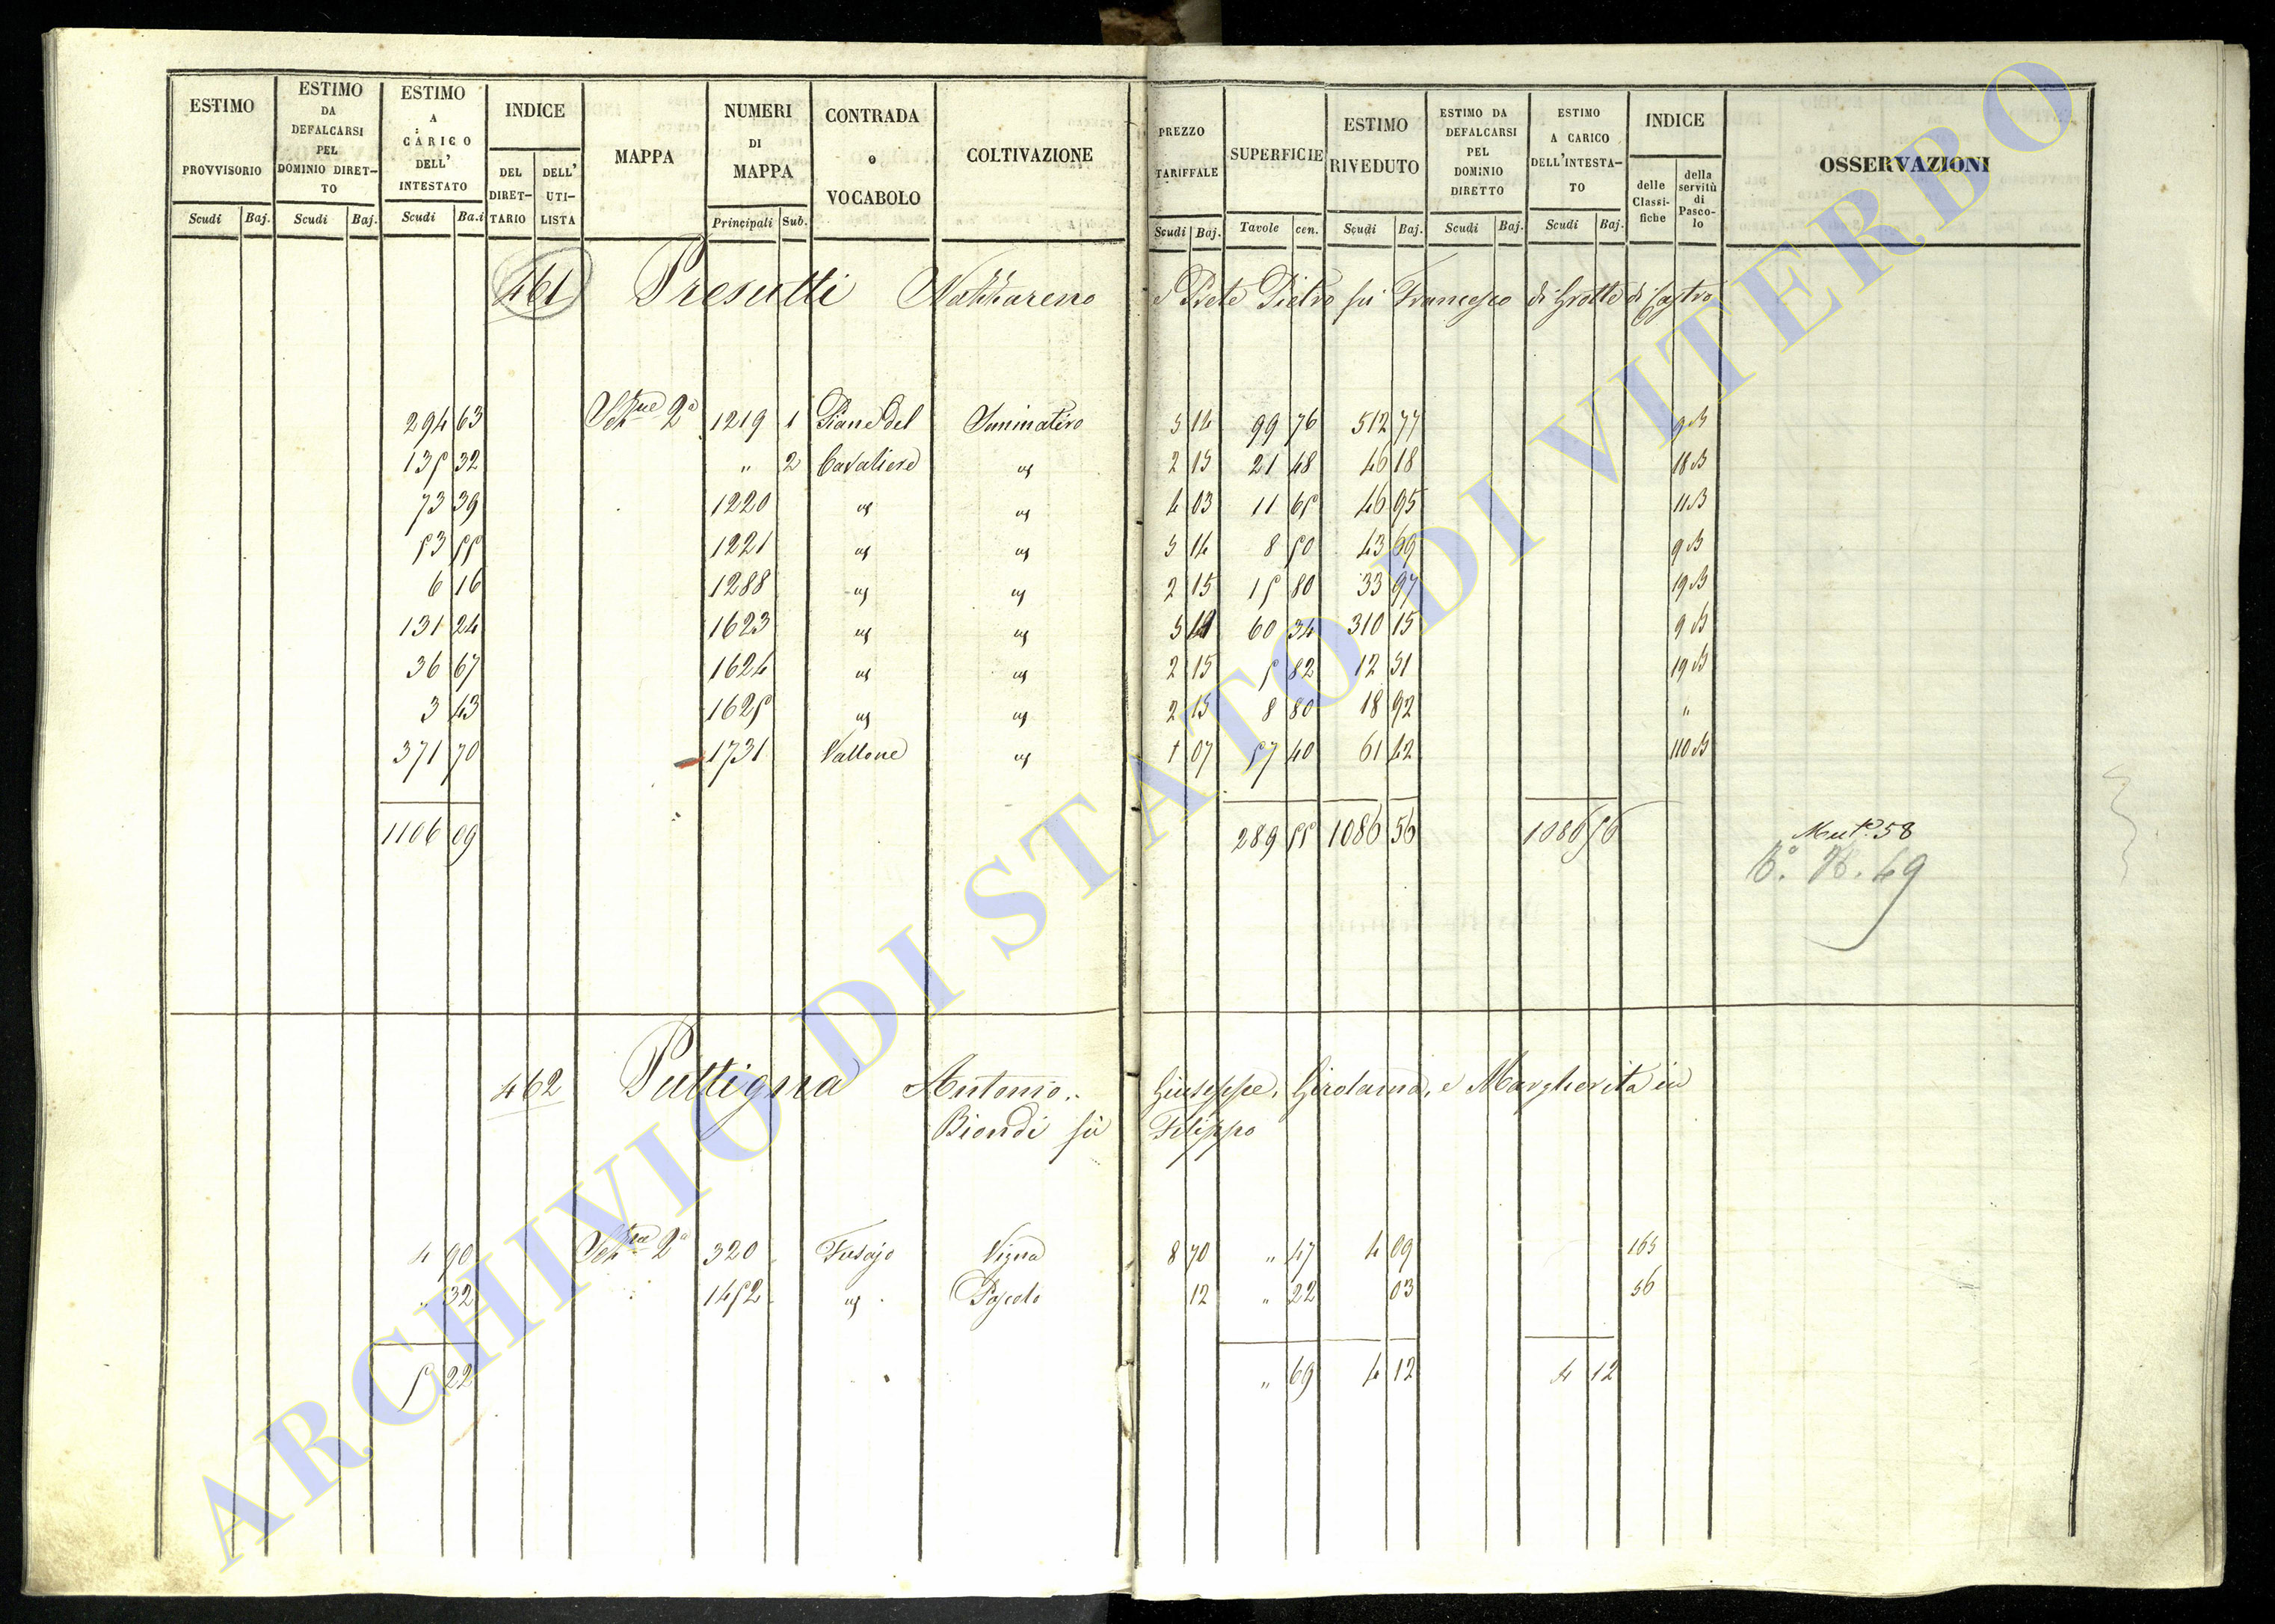 ESTIMO PROVVISORIO | ESTIMO DA DEFALCARSI PEL DOMINIO DIRETTO | ESTIMO A CARICO DELL' INTESTATO | INDICE | MAPPA | NUMERI DI MAPPA | CONTRADA o VOCABOLO | COLTIVAZIONE | PREZZO TARIFFALE | SUPERFICIE | ESTIMO RIVEDUTO | ESTIMO DA DEFALCARSI PEL DOMINIO DIRETTO | ESTIMO A CARICO DELL'INTESTATO | INDICE | OSSERVAZIONI
DEL DIRETTARIO | DELL' UTILISTA | delle Classifiche | della servitù di Pascolo
Scudi | Baj. | Scudi | Baj. | Scudi | Ba.i | Principali | Sub. | Scudi | Baj. | Tavole | cen. | Scudi | Baj. | Scudi | Baj. | Scudi | Baj.
461 Presutti Nazzareno e Prete Pietro fu Francesco di Grotte di Castro
294 63 | Sezne 2a | 1219 | 1 | Piane del | Seminativo | 5 14 | 99 76 | 512 77 | 9 B
135 32 | " | 2 | Cavaliere | " | 2 15 | 21 48 | 46 18 | 18 B
73 39 | 1220 | " | " | 4 03 | 11 65 | 46 95 | 11 B
53 55 | 1221 | " | " | 5 14 | 8 50 | 43 69 | 9 B
6 16 | 1288 | " | " | 2 15 | 15 80 | 33 97 | 19 B
131 24 | 1623 | " | " | 5 14 | 60 34 | 310 15 | 9 B
36 67 | 1624 | " | " | 2 15 | 5 82 | 12 51 | 19 B
3 43 | 1625 | " | " | 2 15 | 8 80 | 18 92 | "
371 70 | 1731 | Vallone | " | 1 07 | 57 40 | 61 42 | 110 B
1106 09 | 289 55 | 1086 56 | 1086 56 | Mut.e 58
69
462 Puttigna Antonio.. Giuseppe, Girolama, e Margherita in
Biondi fù Filippo
4 90 | Sezne 2a | 320 | Fusajo | Vigna | 8 70 | " 47 | 4 09 | 165
" 32 | 1452 | " | Pascolo | 12 | " 22 | 03 | 56
5 22 | " 69 | 4 12 | 4 12
ARCHIVIO DI STATO DI VITERBO